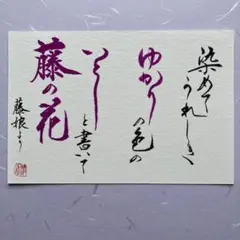 染めてうれしき
ゆかりの色の
いとしと書いて
藤の花
藤娘より